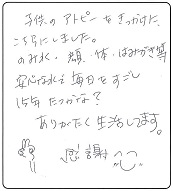 子供のアトピーをきっかけに
こちらにしました。
のみ水・顔・体・はみがき等
安心な水で毎日をすごし
15年たつかな?
ありがたく生活してます。
感謝